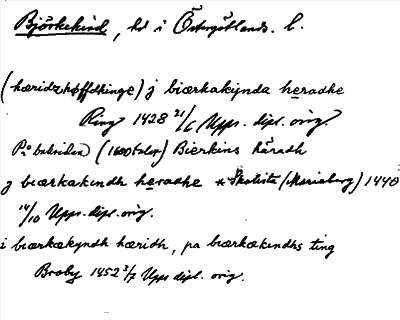 Björkekind, hd i Östergötlands l.
(hæridzhøffdhinge) j biærkakynda heradhe
Ring 1428 21/6 Upps. dipl. orig.
På baksidan (1600talet) Bierkins häradh
j bærkakindh heradhe * Skatista (Marieberg) 1440
14/10 Upps. dipl. orig.
i biærkækyndh hæridh, pa biærkækindhs ting
Broby 1452 3/7 Upps dipl. orig.